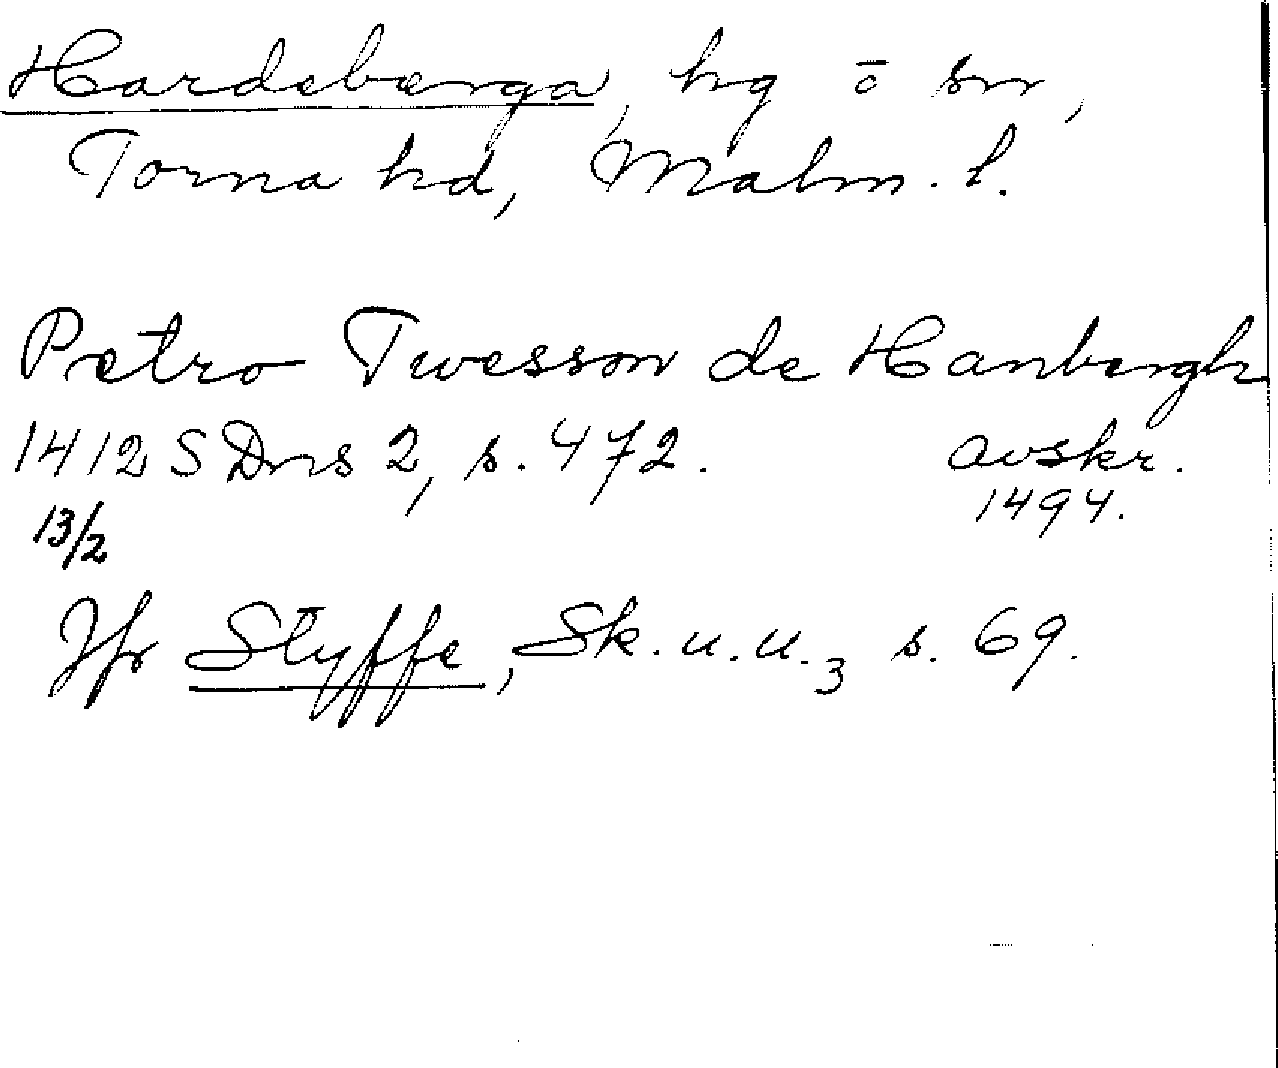 Hardeberga, hg o sn,
Torna hd, Malm. l.
Petro Twesson de Hanbergh
1412 SDns 2, s. 472. avskr.
13/2 1494.
Jfr Styffe, Sk. u. u. 3 s. 69.